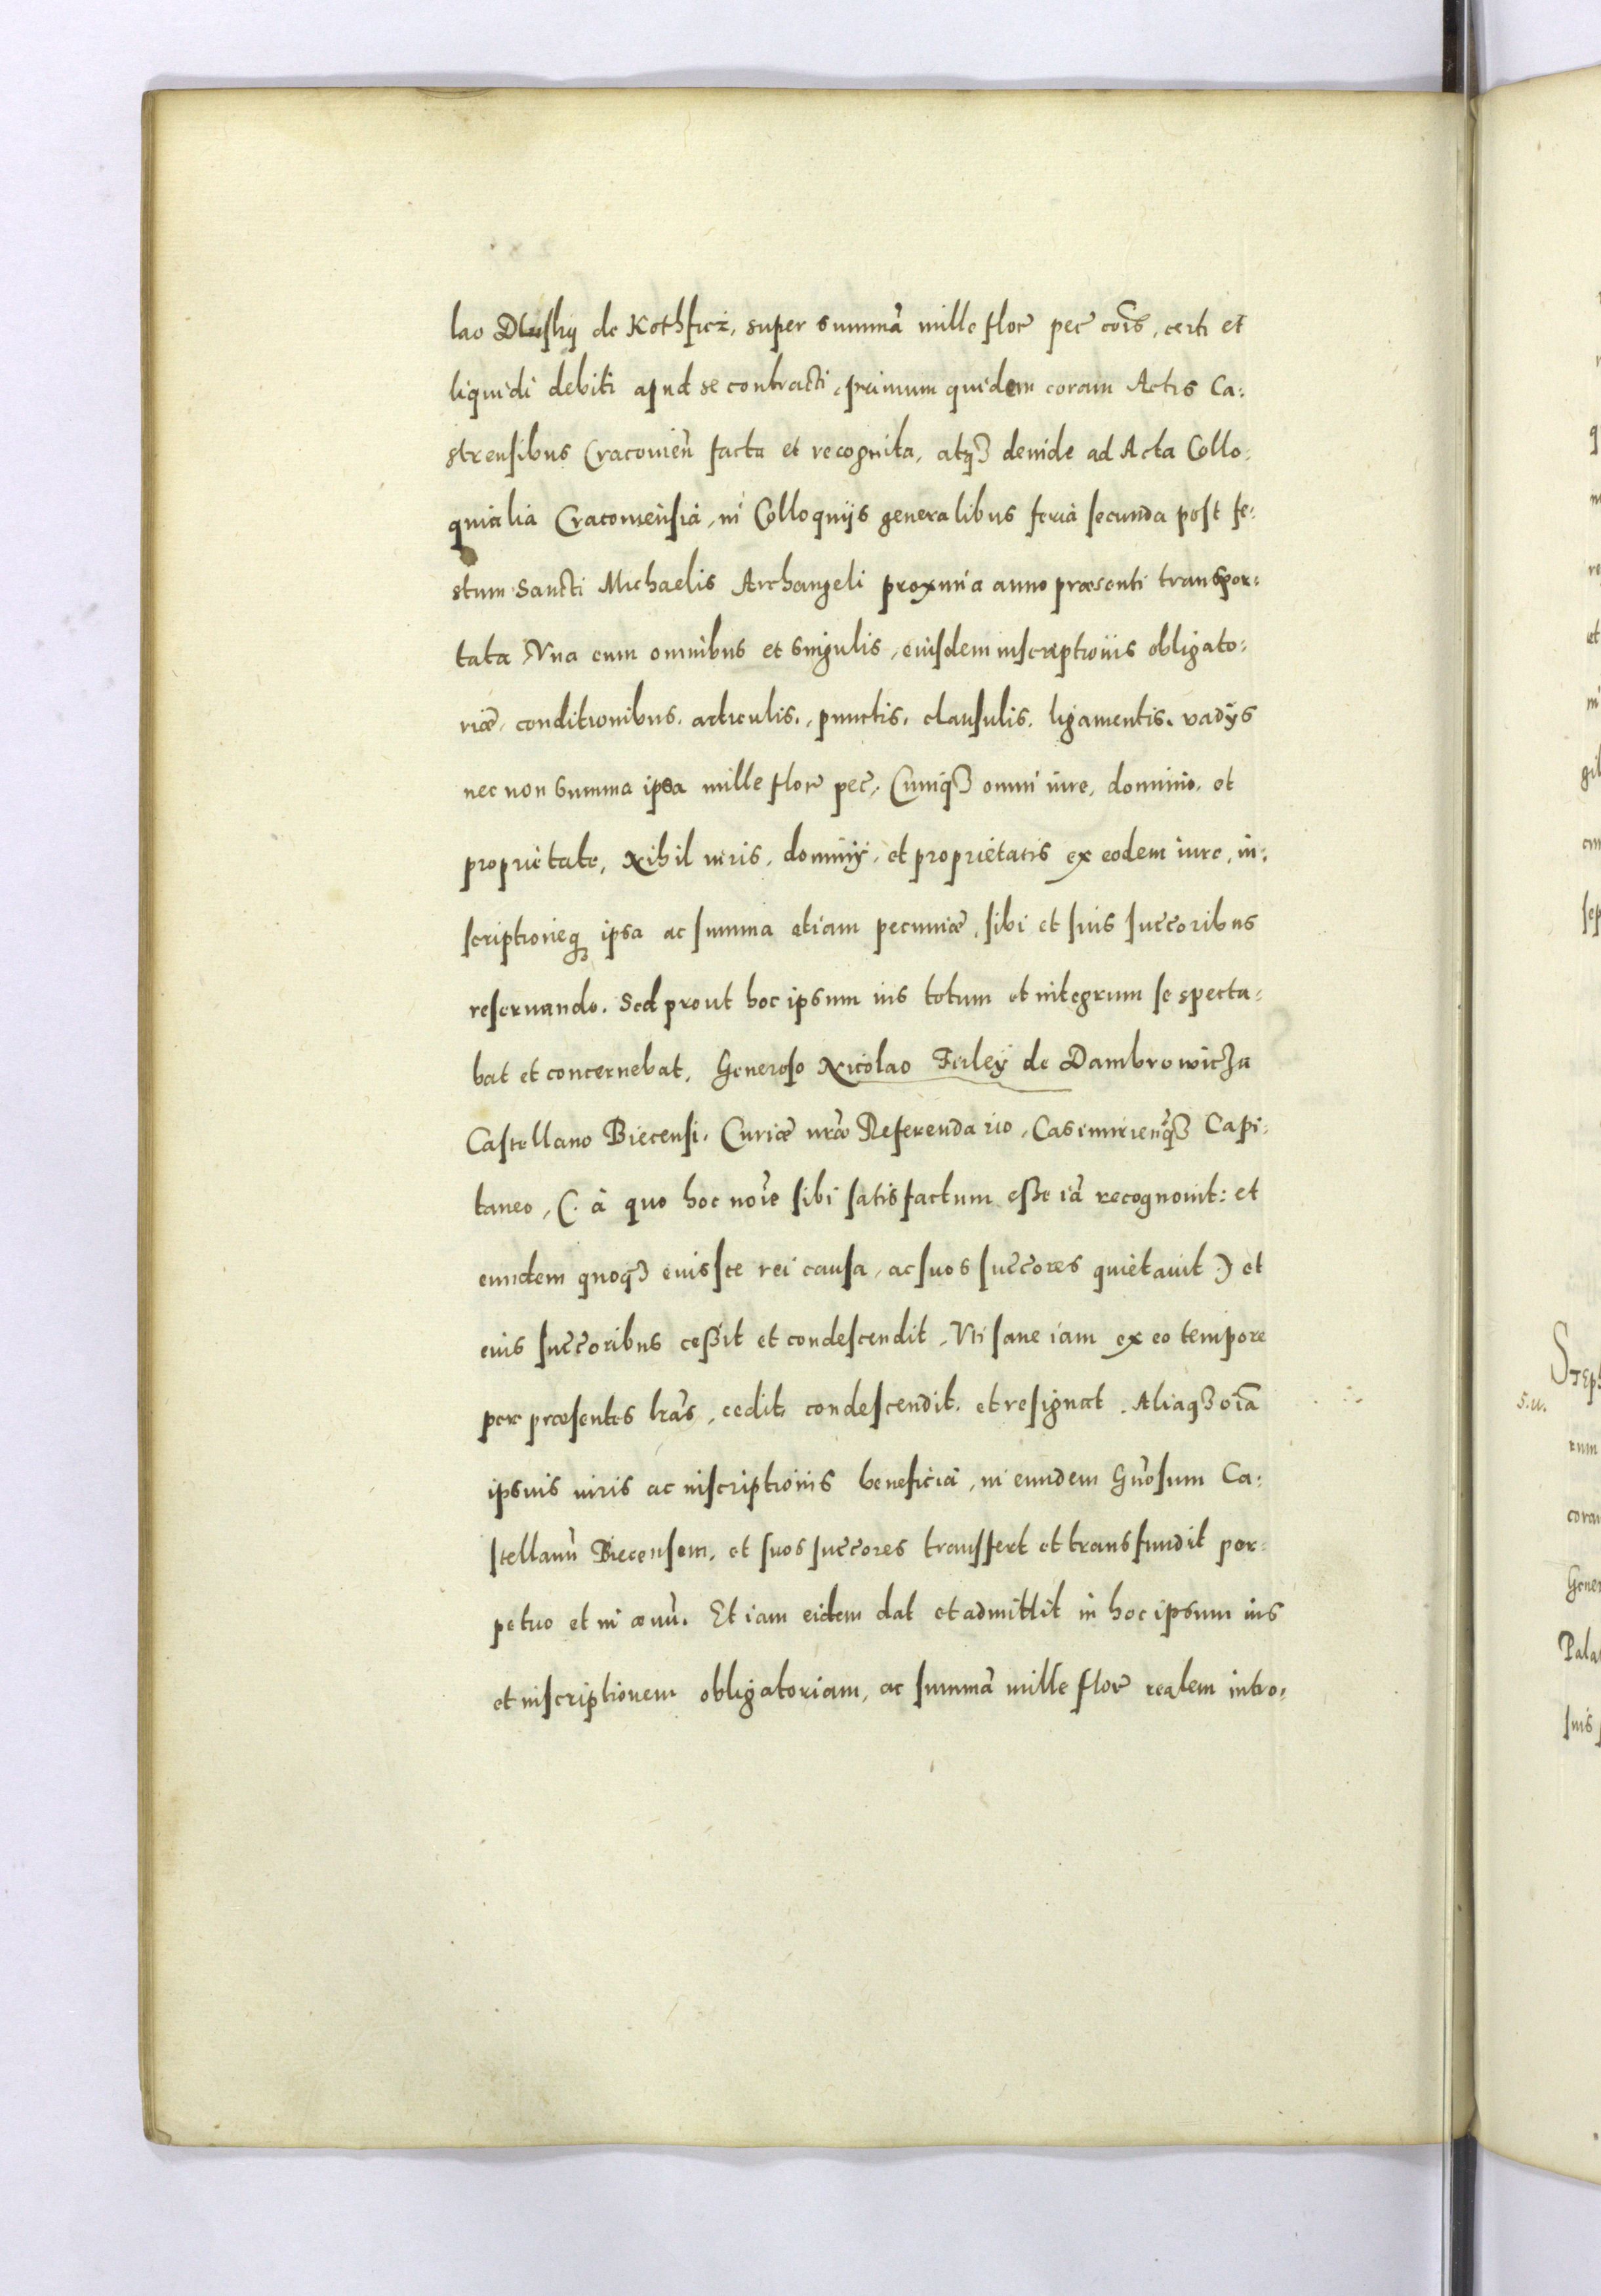 lao Dluski de Kothficz, super summã mille flor pec cõis, certi et
liquidi debiti apud se contracti, primum quidem coram Actis Ca:
strensibus Cracovieñ facta et recognita, atqȝ deinde ad Acta Collo:
quialia Cracoviensia, in Colloquijs generalibus feria secunda post fe:
stum Sancti Michaelis Archangeli proxima anno præsenti transpor:
tata Vna cum omnibus et singulis, eiusdem inscriptionis obligato:
riæ, conditionibus, articulis, punctis, clausulis, ligamentis, vadijs
nec non summa ipsa mille flor pec, Cumqȝ omni iure, dominio, et
proprietate, Nihil iuris, dominij, et proprietatis ex eodem iure, in:
scriptioneqȝ ipsa ac summa etiam pecuniæ, sibi et suis succoribus
reseruando. Sed prout hoc ipsum ius totum et integrum se specta:
bat et concernebat, Generoso Nicolao Firley de Dambrowicza
Castellano Biecensi, Curiæ nræ Referendario, Casimirieñqȝ Capi:
taneo, (. à quo hoc noĩe sibi satisfactum esse iã recognouit: et
eundem quoqȝ euisce rei causa, ac suos succores quietauit ) et
eius succoribus cessit et condescendit, Vti sane iam ex eo tempore
per præsentes lras, cedit, condescendit, et resignat. Aliaqȝ oĩa
ipsius iuris ac inscriptionis beneficia, in eundem Gñosum Ca:
stellanũ Biecensem, et suos succores transfert et transfundit per:
petuo et in æuũ. Et iam eidem dat et admittit in hoc ipsum ius
et inscriptionem obligatoriam, ac summã mille flor realem intro: